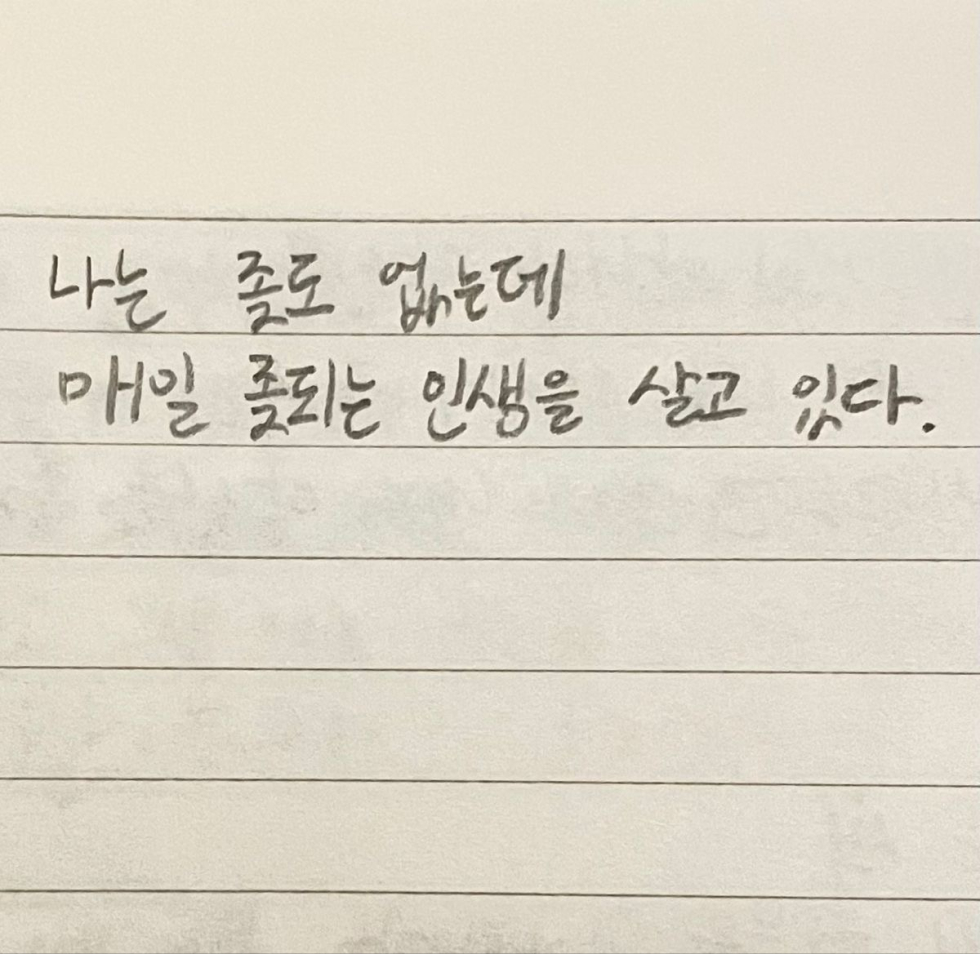 나는 좆도 없는데
매일 좆되는 인생을 살고 있다.